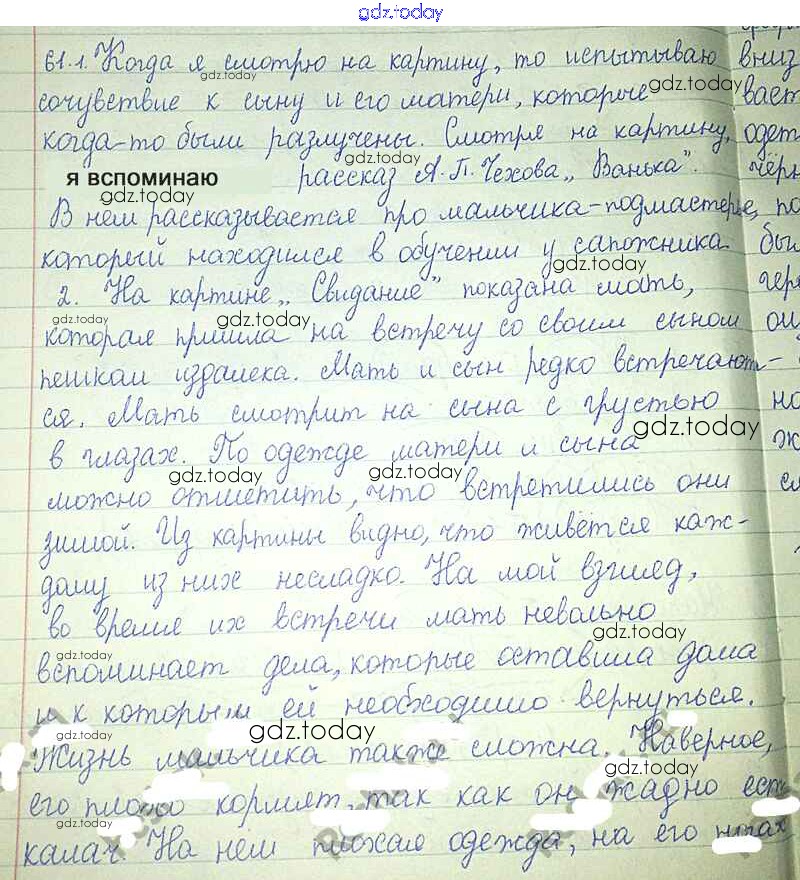 gdz.today
61.1. Когда я смотрю на картину, то испытываю
сочувствие к сыну и его матери, которые
когда-то были разлучены. Смотря на картину,
я вспоминаю рассказ А. П. Чехова „Ванька".
В нём рассказывается про мальчика-подмастерье,
который находился в обучении у сапожника.
2. На картине „Свидание" показана мать,
которая пришла на встречу со своим сыном
пешком издалека. Мать и сын редко встречают-
ся. Мать смотрит на сына с грустью
в глазах. По одежде матери и сына
можно отметить, что встретились они
зимой. Из картины видно, что живётся каж-
дому из них несладко. На мой взгляд,
во время их встречи мать невольно
вспоминает дела, которые оставила дома
и к которым ей необходимо вернуться.
Жизнь мальчика также сложна. Наверное,
его плохо кормят, так как он жадно ест
калач. На нём плохая одежда, на его ногах